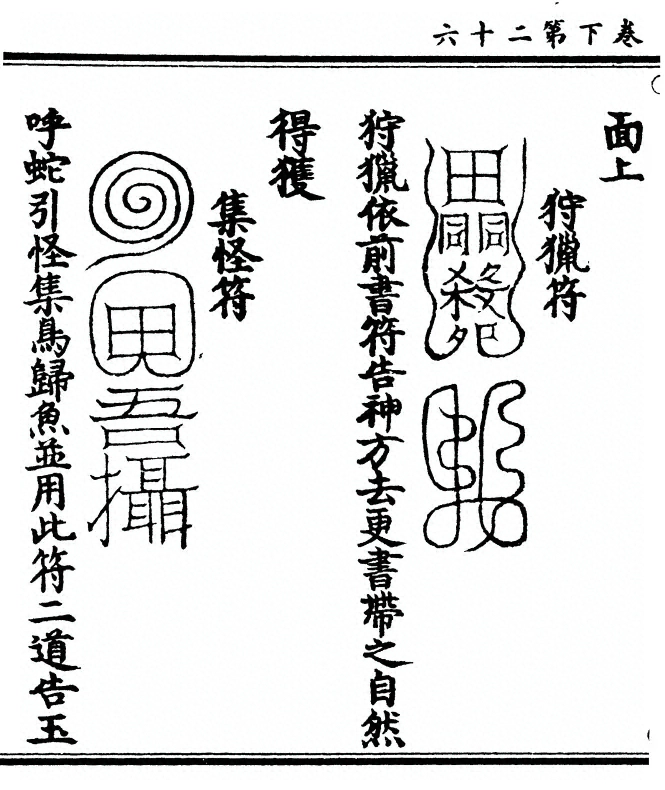 卷下第二十六
面上
狩獵符
田
同同
殺
狩獵依前書符告神方去更書帶之自然
得獲
集怪符
田
吾
攝
呼蛇引怪集鳥歸魚並用此符二道告玉